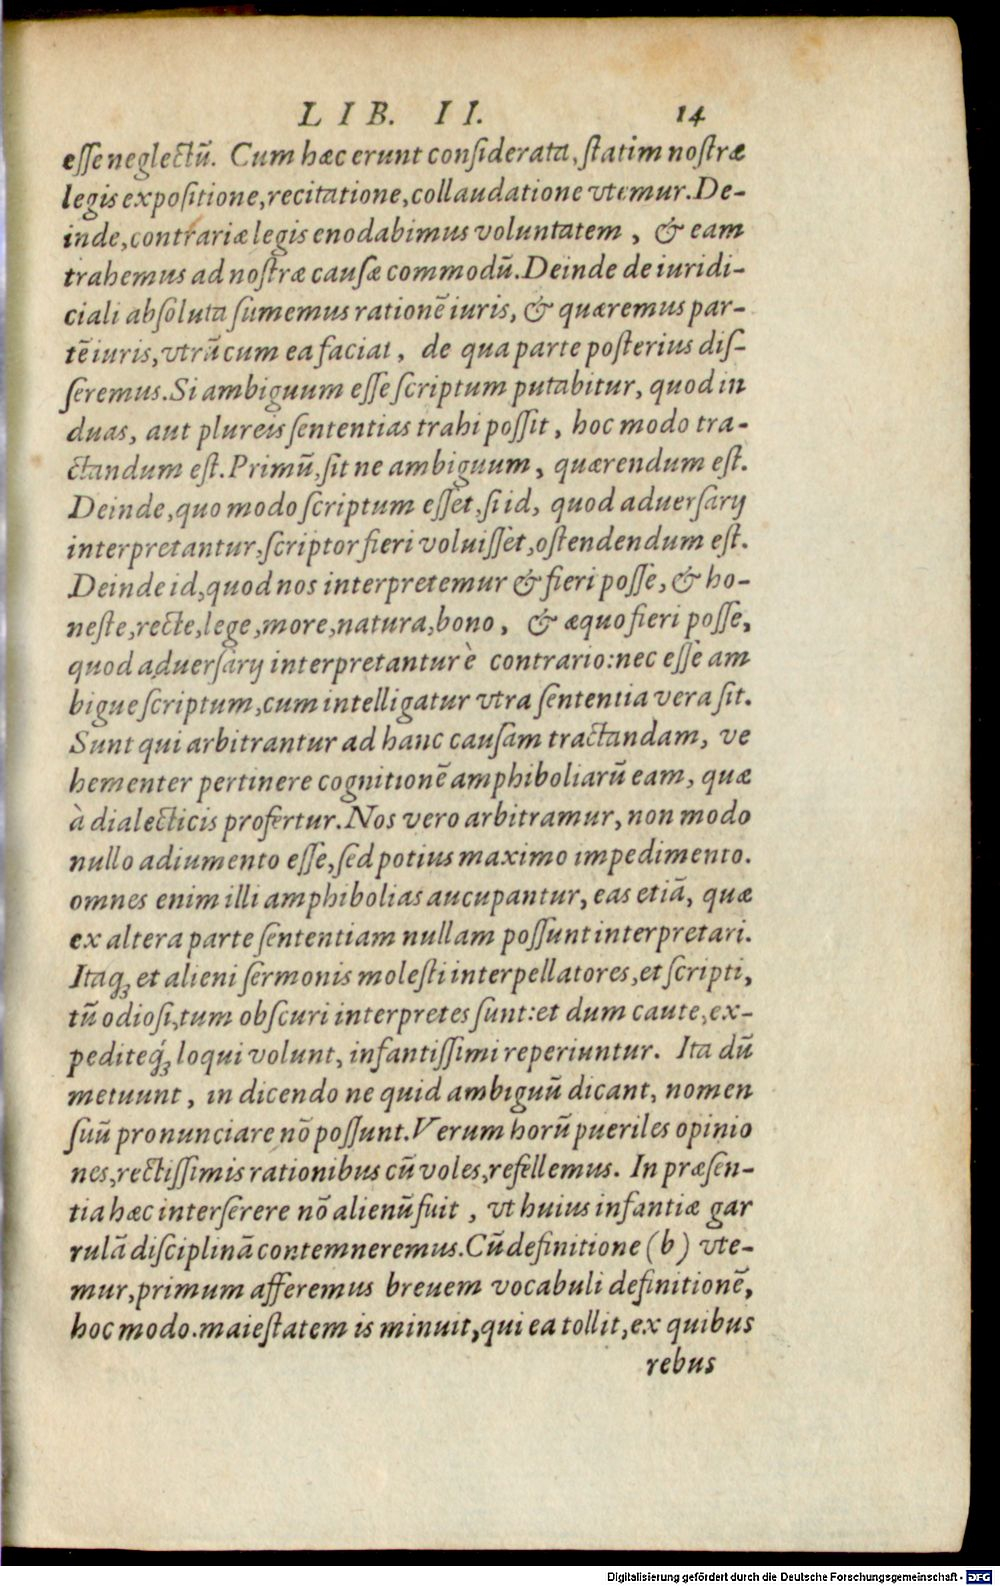 LIB. II. 14
esse neglectū. Cum hæc erunt considerata, statim nostræ
legis expositione, recitatione, collaudatione vtemur. De-
inde, contrariæ legis enodabimus voluntatem, & eam
trahemus ad nostræ causæ commodū. Deinde de iuridi-
ciali absoluta sumemus rationē iuris, & quæremus par-
tē iuris, vtrū cum ea faciat, de qua parte posterius dis-
seremus. Si ambiguum esse scriptum putabitur, quod in
duas, aut plureis sententias trahi possit, hoc modo tra-
ctandum est. Primū, sit ne ambiguum, quærendum est.
Deinde, quo modo scriptum esset, si id, quod aduersarij
interpretantur, scriptor fieri voluisset, ostendendum est.
Deinde id, quod nos interpretemur & fieri posse, & ho-
neste, recte, lege, more, natura, bono, & æquo fieri posse,
quod aduersarij interpretantur è contrario: nec esse am
bigue scriptum, cum intelligatur vtra sententia vera sit.
Sunt qui arbitrantur ad hanc causam tractandam, ve
hementer pertinere cognitionē amphiboliarū eam, quæ
à dialecticis profertur. Nos vero arbitramur, non modo
nullo adiumento esse, sed potius maximo impedimento.
omnes enim illi amphibolias aucupantur, eas etiā, quæ
ex altera parte sententiam nullam possunt interpretari.
Itaqꝫ et alieni sermonis molesti interpellatores, et scripti,
tū odiosi, tum obscuri interpretes sunt: et dum caute, ex-
pediteqꝫ́ loqui volunt, infantissimi reperiuntur. Ita dū
metuunt, in dicendo ne quid ambiguū dicant, nomen
suū pronunciare nō possunt. Verum horū pueriles opinio
nes, rectissimis rationibus cū voles, refellemus. In præsen-
tia hæc interserere nō alienū fuit, vt huius infantiæ gar
rulā disciplinā contemneremus. Cū definitione (b) vte-
mur, primum afferemus breuem vocabuli definitionē,
hoc modo. maiestatem is minuit, qui ea tollit, ex quibus
rebus
Digitalisierung gefördert durch die Deutsche Forschungsgemeinschaft - DFG